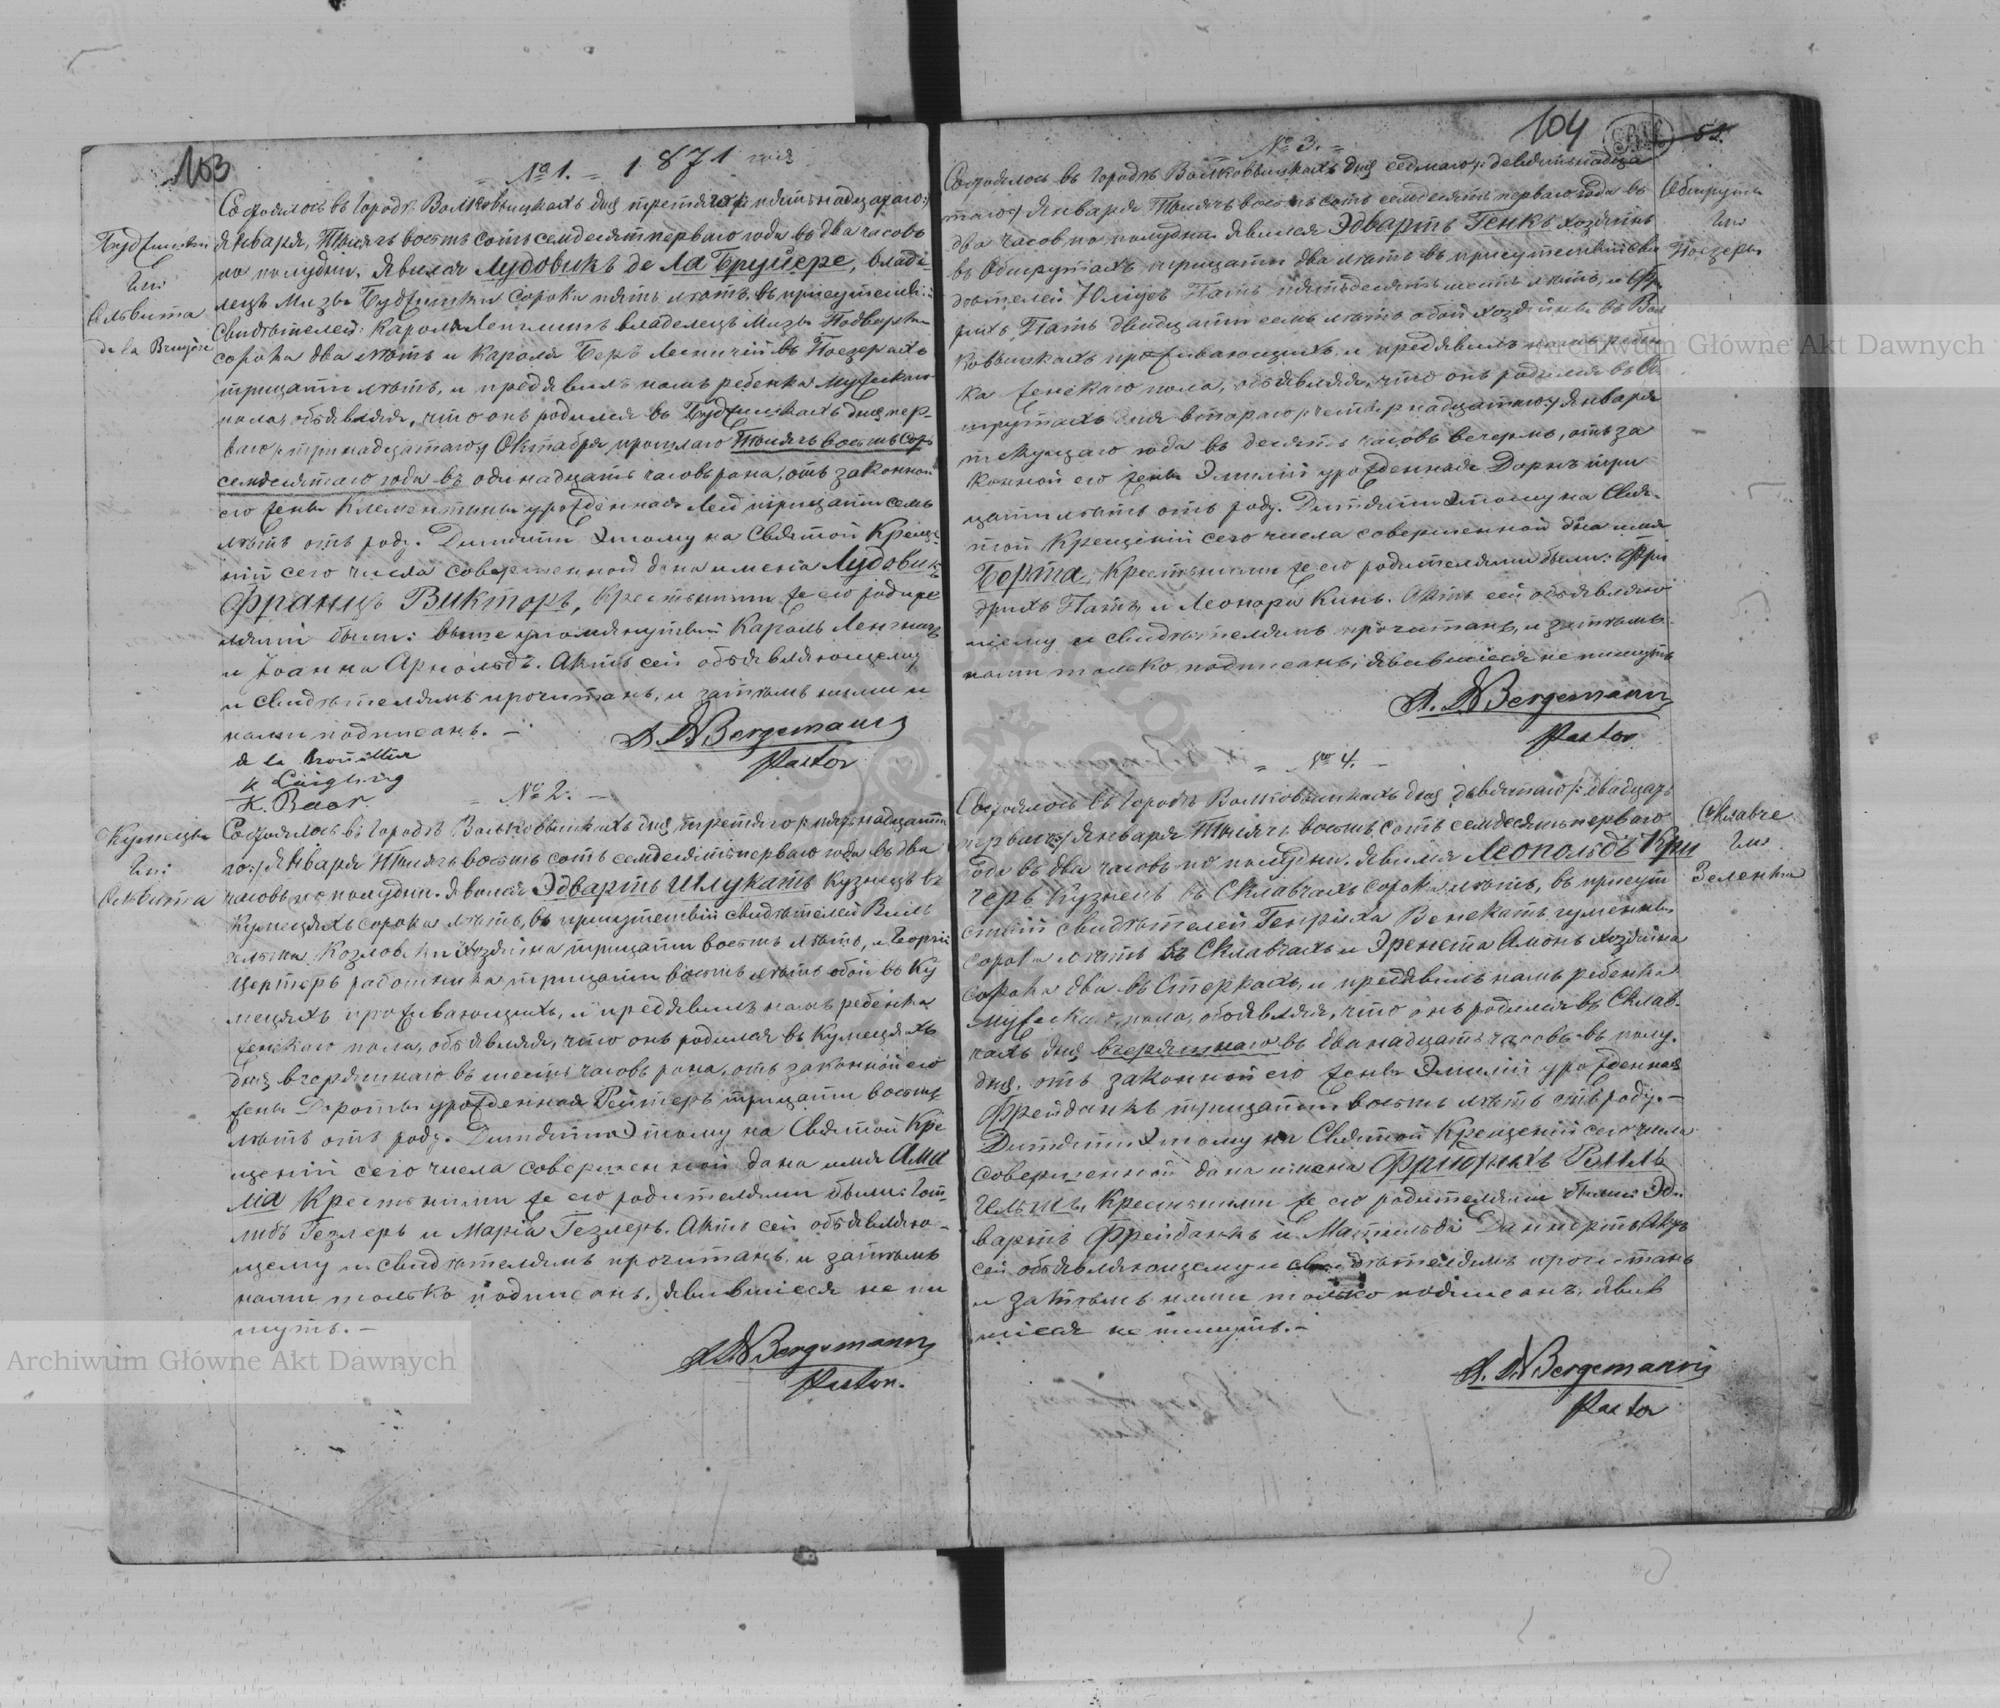 103
№ 1. 1871 года
Состоялось въ Городѣ Волковышкахъ дня третяго /: пятьнадцатаго :/
Января, Тысяча восемь сотъ семдесятъ перваго года въ два часовъ
по полудни. Явился Лудовикъ де Ла Бруйере, владѣ
лецъ Мызы Будженки сорока пять лѣтъ, въ присутствіи
Свидѣтелей: Кароля владелецъ Мызы
сорока два лѣтъ и Кароля Беръ Лесничій въ Поезерахъ
трицати лѣтъ, и предявилъ намъ ребенка мужескаго
пола, объявляя, что онъ родился въ дня пер
ваго /: тринадцатаго :/ Октября прошлаго Тысяча восемь сотъ
семдесятаго года въ одинадцать часовъ рана, отъ законной
его жены Клементины урожденная трицати семь
лѣтъ отъ роду. Дитяти этому на Святой Креще
ніи сего числа совершенной дана имена Лудовикъ
Францъ Викторъ, Крестными же его родите
лями были: выше упомянутый Кароль
и Іоанна Арнольдъ. Актъ сей объявляющему
и Свидѣтелямъ прочитанъ, и затѣмъ ними и
нами подписанъ. –
A. W Bergemann
Pastor
de la
K.
K. Baer.
де la Bruyère
№ 2. –
Состоялось въ Городѣ Волковышкахъ дня третяго /: пятьнадцата
го :/ Января Тысяча восемь сотъ семдесятъ перваго года въ два
часовъ по полудни. Явился Эдвартъ Шлукатъ Кузнецъ въ
Кумецяхъ сорока лѣтъ, въ присутствіи свидѣтелей Виль
гельма Хозяина трицати восемь лѣтъ, и
работника трицати восемь лѣтъ обой въ Ку
мецяхъ проживающихъ, и предявилъ намъ ребенка
женскаго пола, объявляя, что онъ родился въ Кумецяхъ
дня вчерашнаго въ шесть часовъ рана, отъ законной его
жены Дароты урожденная Рейтеръ трицати восемь
лѣтъ отъ роду. Дитяти этому на Святой Кре
щеніи сего числа совершенной дана имя Ама
лія Крестными же его родителями были: Гот
либъ Гезлеръ и Марія Гезлеръ. Актъ сей объявляю-
щему и свидѣтелямъ прочитанъ, и затѣмъ
нами только подписанъ. Явившіеся не пи
шутъ. –
A. W Bergemann
Pastor.
104
№ 3.
Состоялось въ Городѣ Волковышкахъ дня седмаго /: девятьнадца
таго :/ Января Тысяча восемь сотъ семдесятъ перваго года въ
два часовъ по полудни. Явился Эдвартъ Генкъ хозяинъ
въ Обшрутахъ трицати два лѣтъ въ присутствіи Сви
дѣтелей Юліусъ Патъ пятьдесятъ шесть лѣтъ, и
Патъ двидцати семь лѣтъ обой хозяины въ Вол
ковышкахъ проживающихъ, и предявилъ намъ ребен
ка женскаго пола, объявляя, что онъ родился въ Об
шрутахъ дня втораго /: четырнадцатаго :/ Января
текущаго года въ десять часовъ вечеромъ, отъ за
конной его жены Эмиліи урожденная Дорнъ три
цати лѣтъ отъ роду. Дитяти этому на Свя-
той Крещеніи сего числа совершенной дана имя
Берта, Крестными же его родителями были: Фри
дрихъ Патъ и Леонора Кинъ. Актъ сей объявляю
щему и свидѣтелямъ прочитанъ, и затѣмъ
нами только подписанъ, явившіеся не пишутъ
A. W Bergemann
Pastor
№ 4. –
Состоялось въ Городѣ Волковышкахъ дня девятаго /: двадцать
перваго :/ Января Тысяча восемь сотъ семдесятъ перваго
года въ два часовъ по полудни. Явился Леопольдъ Кри
геръ Кузнецъ въ Склавчахъ сорока лѣтъ, въ присут
ствіи свидѣтелей Генриха
сорока лѣтъ въ Склавчахъ и Эрнеста Амонъ хозяина
сорока два въ Стеркахъ, и предявилъ намъ ребенка
мужескаго пола, объявляя, что онъ родился въ Склав-
чахъ дня вчерашнаго въ дванадцать часовъ въ полу
дня, отъ законной его жены Эмиліи урожденная
Фрейданкъ трицати восемь лѣтъ отъ роду. –
Дитяти этому на Святой Крещеніи сего числа
совершенной дана имена Фридрихъ Виль
гельмъ, Крестными же его родителями были: Эд
вартъ Фрейданкъ и Матильда Даннертъ. Актъ
сей объявляющему и свидѣтелямъ прочитанъ
и затѣмъ нами только подписанъ. Явив
шіеся не пишутъ. –
A. W Bergemann
Pastor
Обшруты
Склавче
Зеленка
Archiwum Główne Akt Dawnych
Archiwum Główne Akt Dawnych